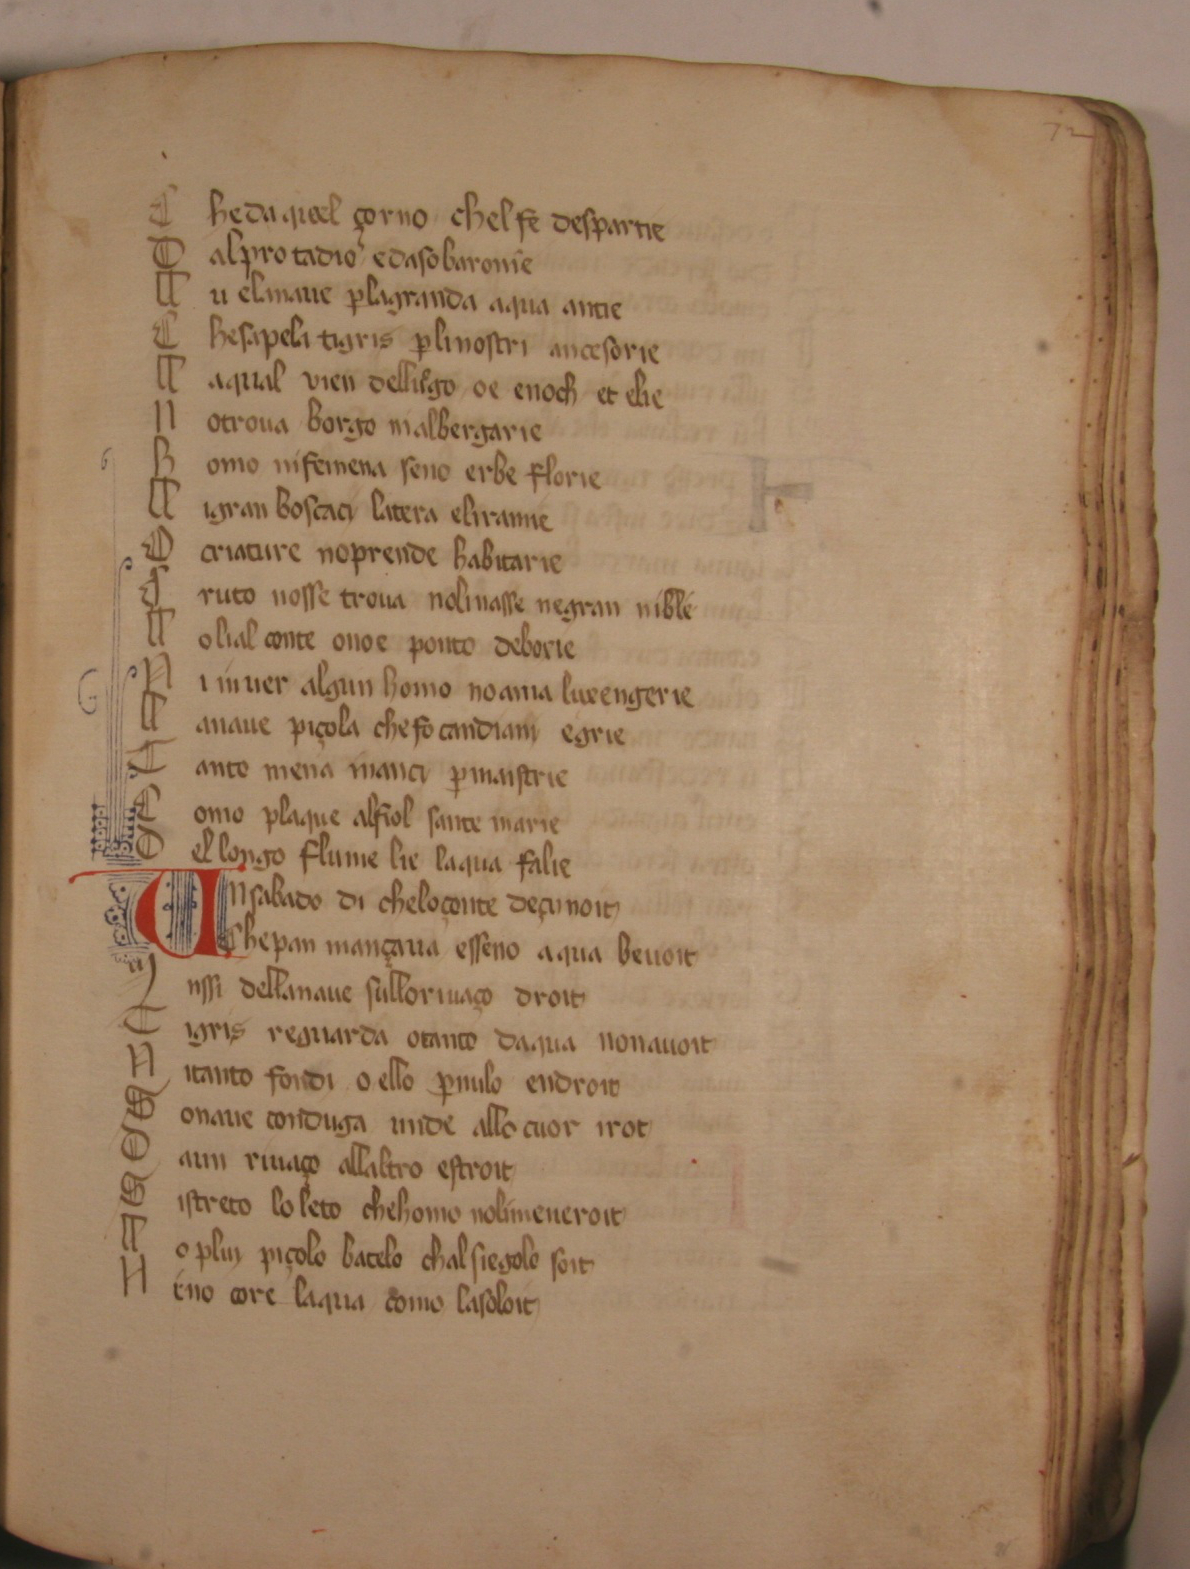 72
C he da quel çorno chel se despartie
D al pro tadio e da so baronie
A u el naue p la granda aqua antie
C he sapela tigris p li nostri ancesorie
A aqual vien dell oe enoch et elie
N o troua borgo ni albergarie
H omo ni femena seno erbe florie
A i gran boscaci la tera eli ranne
O criature no prende habitarie
F ruto nosse troua nolinasse negran nible
A o lial conte onoe ponto deborie
N i in uer algun homo no ama luxengerie
A a naue piçola che so candian egrie
T anto mena inanci p maistrie
C omo plaque al fiol sante marie
D el longo flume lie laqua falie
U N sabado di chelo çonte deçunoit
Che pan mançaua esseno aqua beuoit
nssi della naue sullo riuaço droit
T igris reguarda o tanto daqua non auoit
N i tanto fondi o ello p nulo endroit
S o naue conduga unde allo cuor irot
D a un riuaço allaltro estroit
S i streto lo leto che homo no li meneroit
A o plui piçolo batelo chal siegolo soit
N e no core laqua como la soloit